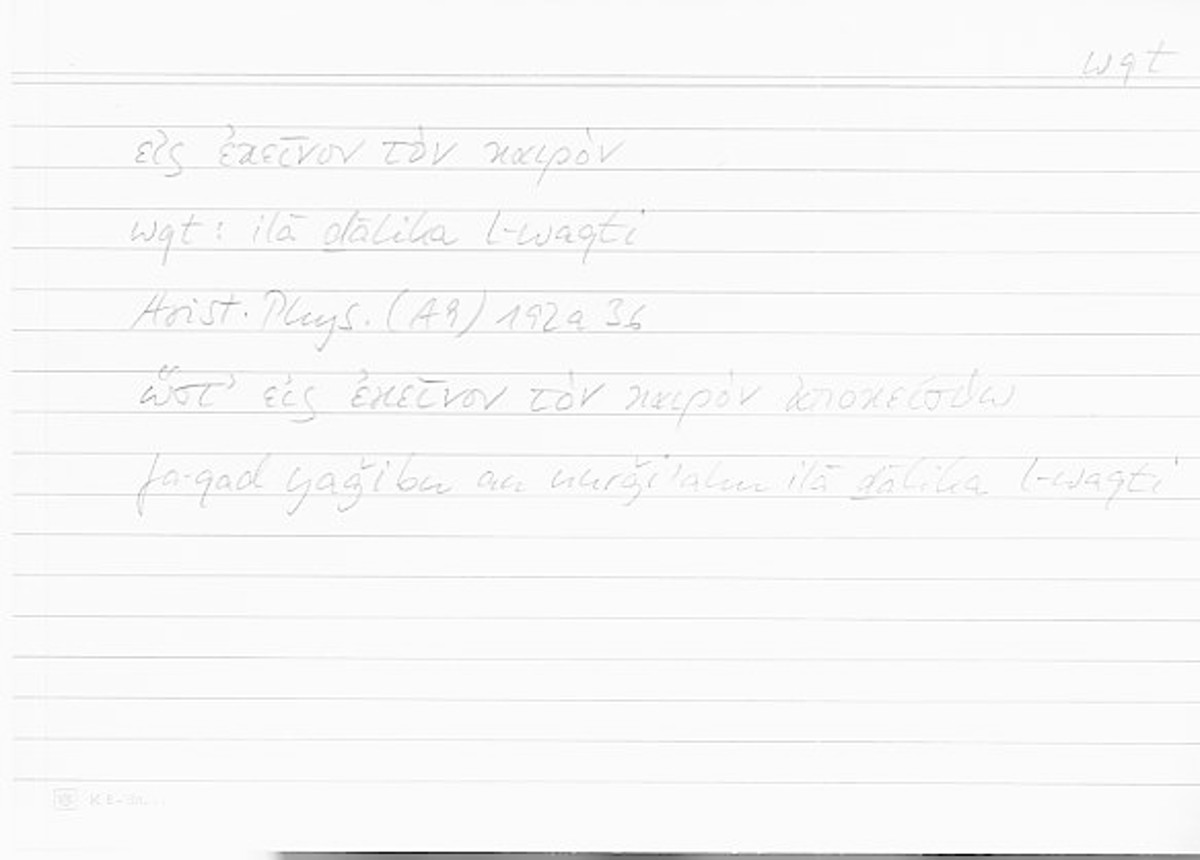 wqt
εἰς ἐκεῖνον τὸν καιρὸν
wqt: ilā ḏālika l-waqti
Arist. Phys. (A9) 192a 36
ὥστ' εἰς ἐκεῖνον τὸν καιρὸν ἀποκείσθω
fa-qad yaǧibu an nurǧi'ahu ilā ḏālika l-waqti